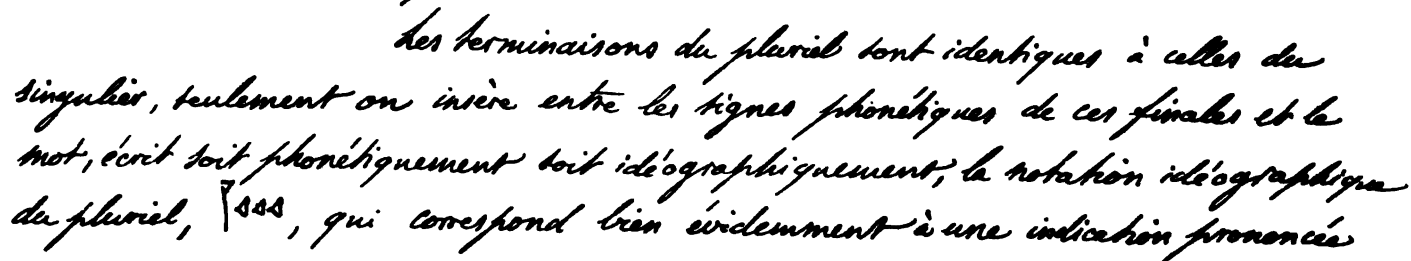 Les terminaisons du pluriel sont identiques à celles du
singulier, seulement on insère entre les signes phonétiques de ces finales et le
mot, écrit soit phonétiquement soit idéographiquement, la notation idéographique
du pluriel, 𒈨𒌍, qui correspond bien évidemment à une indication prononcée